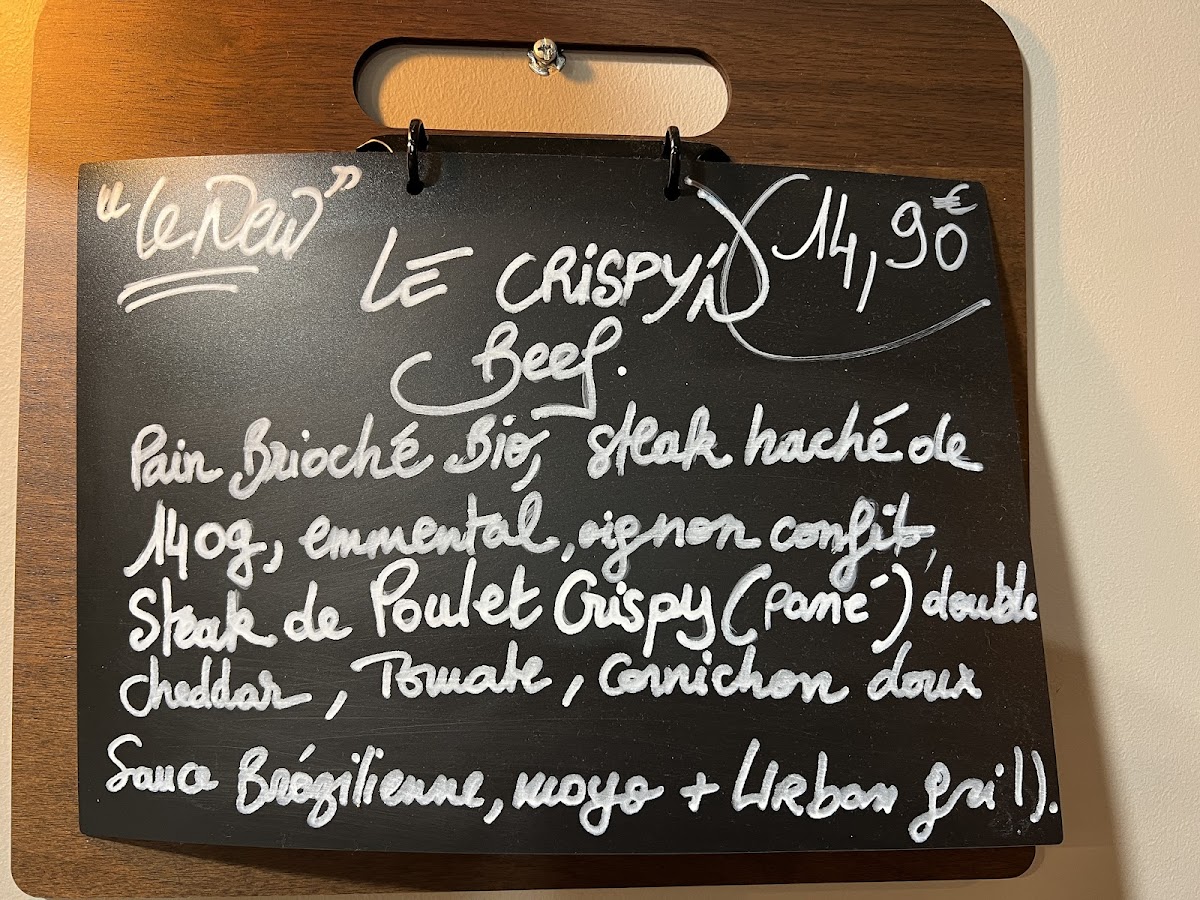 "Le New"
14,90€
LE CRISPY'N
Beef.
Pain Brioché Bio, steak haché de
140g, emmental, oignon confit,
Steak de Poulet Crispy (pané) double
cheddar, Tomate, Cornichon doux
Sauce Brézilienne, mayo + Urban gril).